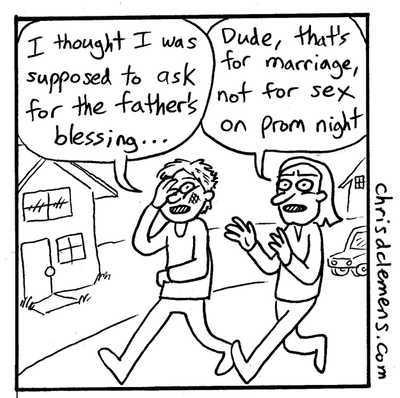 I thought I was
supposed to ask
for the father's
blessing...
Dude, that's
for marriage,
not for sex
on prom night
chrisdclemens.com